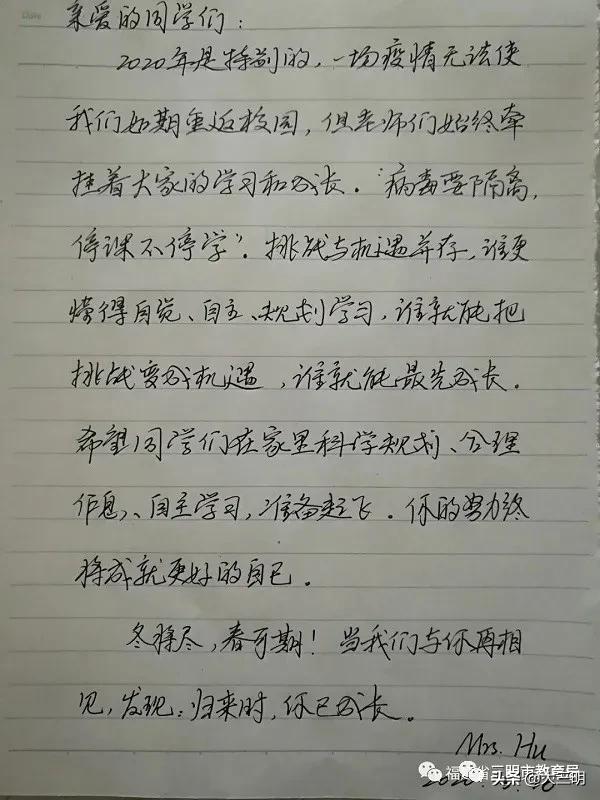 亲爱的同学们：
2020年是特别的，一场疫情无法使
我们如期重返校园，但老师们始终牵
挂着大家的学习和成长。“病毒要隔离，
停课不停学”。挑战与机遇并存，谁更
懂得自觉、自主、规划学习，谁就能把
挑战变成机遇，谁就能最先成长。
希望同学们在家里科学规划、合理
作息、自主学习，准备起飞。你的努力终
将成就更好的自己。
冬将尽，春可期！当我们与你再相
见，发现：归来时，你已成长。
Mrs. Hu
2020.
福建省三明市教育局
头条@大三明